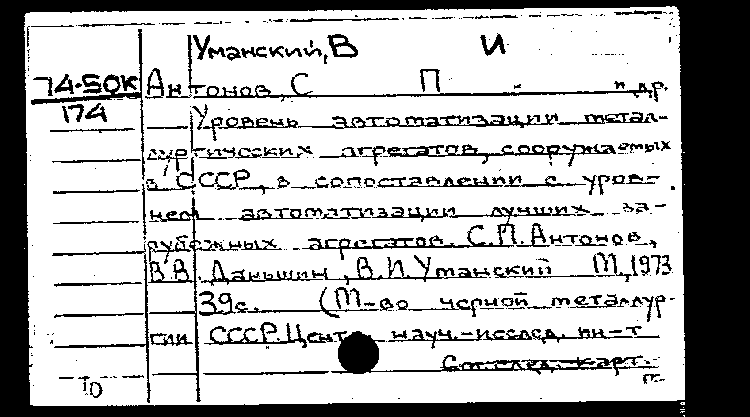 Уманский, В И
74-50К Антонов, С П . и др.
174 Уровень автоматизации метал-
лургических агрегатов, сооружаемых
в СССР, в сопоставлении с уров-
нем автоматизации лучших за-
рубежных агрегатов. С.П.Антонов,
В.В. Даньшин, В.И.Уманский М., 1973
39с. (М-во черной металлур-
гии СССР. Центр. науч.-исслед. ин-т
См.след. карт.
п.
10